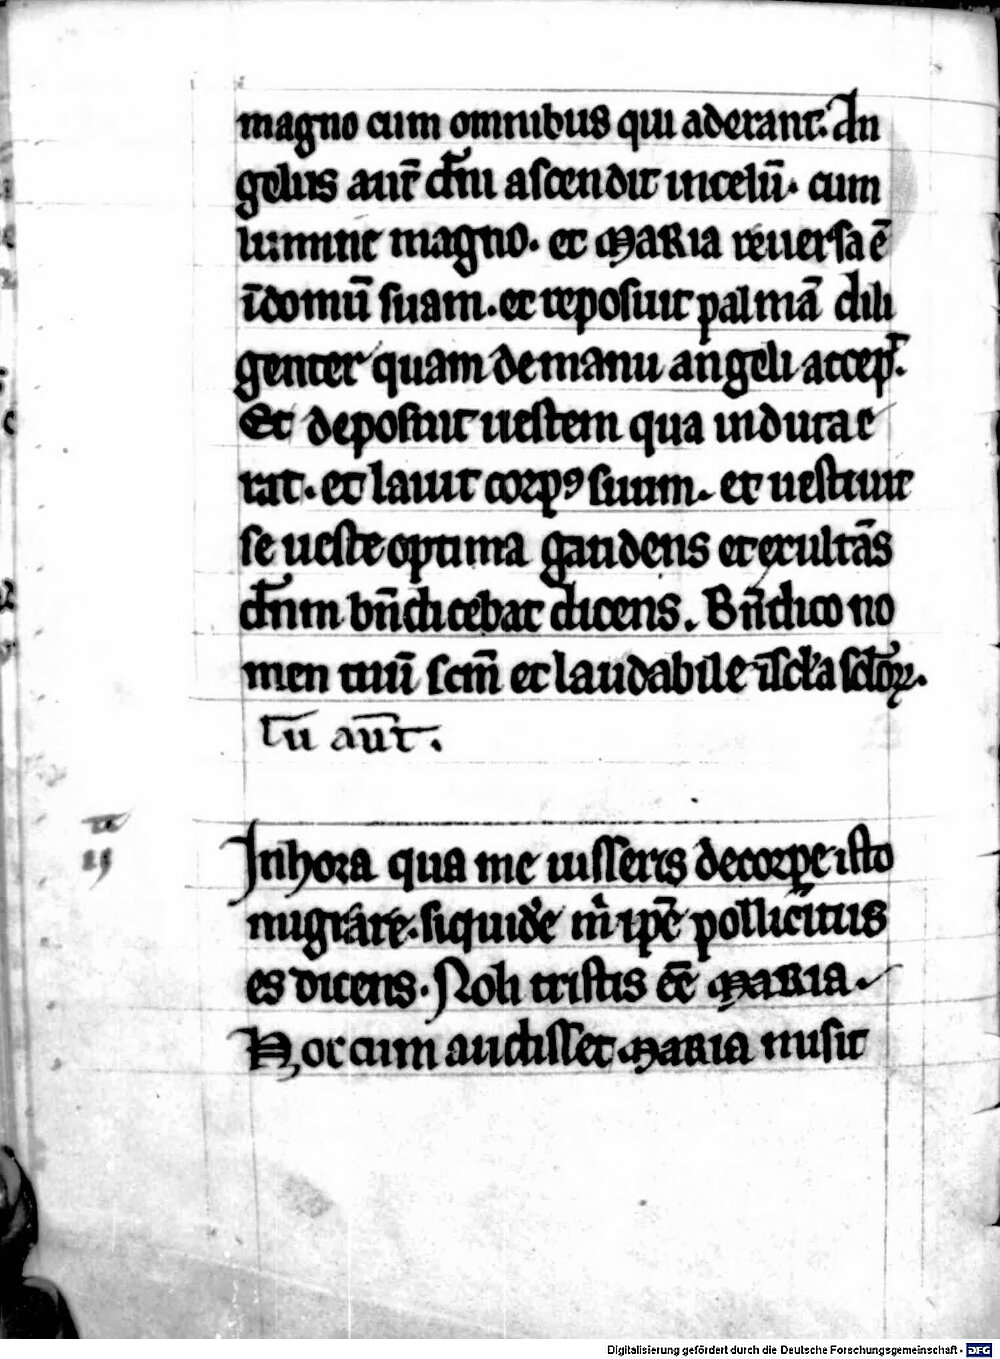 magno cum omnibus qui aderant. An
gelus aut̄ dn̄i ascendit in celū. cum
lumine magno. et MARIA reuersa ē
ī domū suam. et reposuit palmā dili
genter quam de manu angeli accep̄.
Et deposuit uestem qua induta e
rat. et lauit corpꝰ suum. et uestiuit
se ueste optima gaudens et exultās
dn̄m bn̄dicebat dicens. Bn̄dico no
men tuū scm̄ et laudabile ī scl̄a scl̄oꝝ.
tu aūt.
In hora qua me iusseris de corpe isto
migrare. siquidē m̄ ip̄e pollicitus
es dicens. Noli tristis eē MARIA
Hoc cum audisset MARIA misit
Digitalisierung gefördert durch die Deutsche Forschungsgemeinschaft - DFG